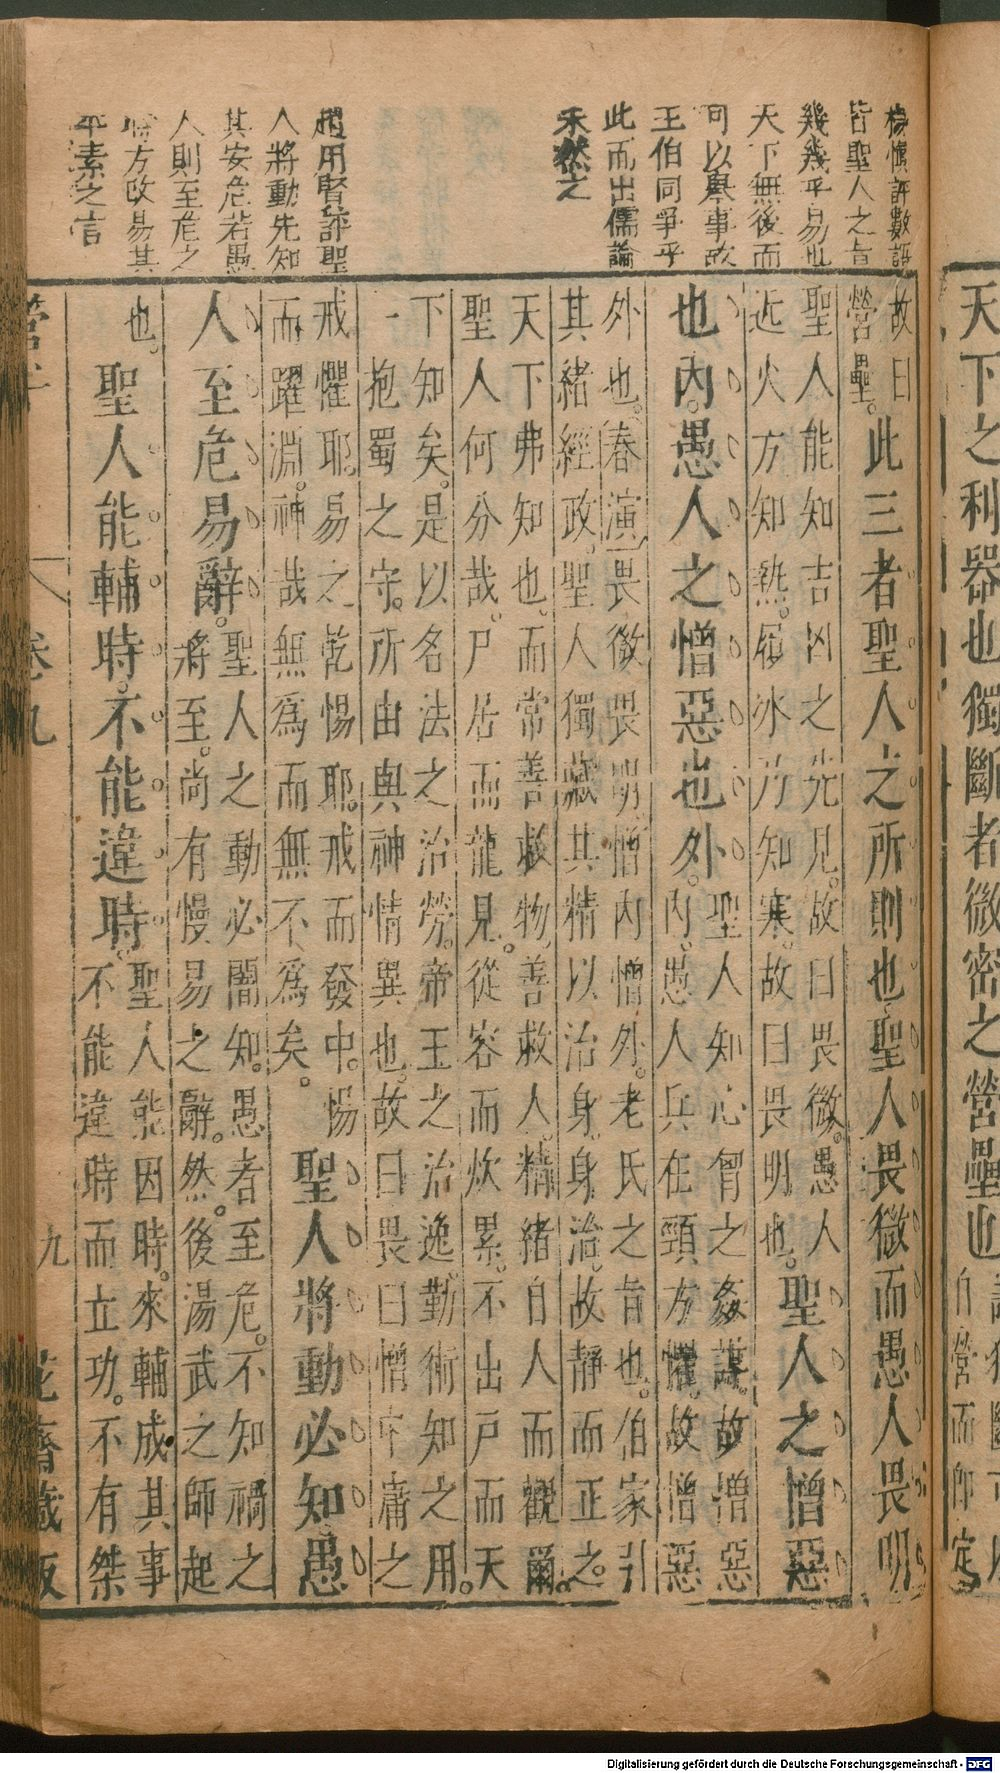 楊愼評數語
皆聖人之旨
幾幾乎易也
天下無後而
可以與事故
王伯同爭乎
此而出儒論
未然之
趙用賢評聖
人將動先知
其安危若愚
人則至危之
時方改易其
平素之言
天下之利器也獨斷者微密之營壘也
自營而卽定
故曰
營壘。
此三者聖人之所則也聖人畏微而愚人畏明
聖人能知吉凶之先見。故曰畏微。愚人
近火方知熱。履冰乃知寒。故曰畏明也。
聖人之憎惡
也內。愚人之憎惡也外。
聖人知心胷之姦謀。故憎惡
內。愚人兵在頸方懼。故憎惡
外也。春演畏微畏明憎內憎外。老氏之旨也。伯家引
其緖經政。聖人獨藏其精以治身。身治。故靜而正之。
天下弗知也。而常善救物。善救人。精緖自人而觀爾。
聖人何分哉。尸居而龍見。從容而炊累。不出戸而天
下知矣。是以名法之治勞。帝王之治逸。勤術知之用。
一抱蜀之守。所由與神情異也。故曰畏曰憎中庸之
戒懼耶。易之乾惕耶。戒而發中。惕
而躍淵。神哉無爲而無不爲矣。
聖人將動必知。愚
人至危易辭。
聖人之動必闇知。愚者至危。不知禍之
將至。尚有慢易之辭。然。後湯武之師起
也。
聖人能輔時。不能違時。
聖人能因時。來輔成其事
不能違時而立功。不有桀
管子
卷九
九
花齋藏板
Digitalisierung gefördert durch die Deutsche Forschungsgemeinschaft - DFG